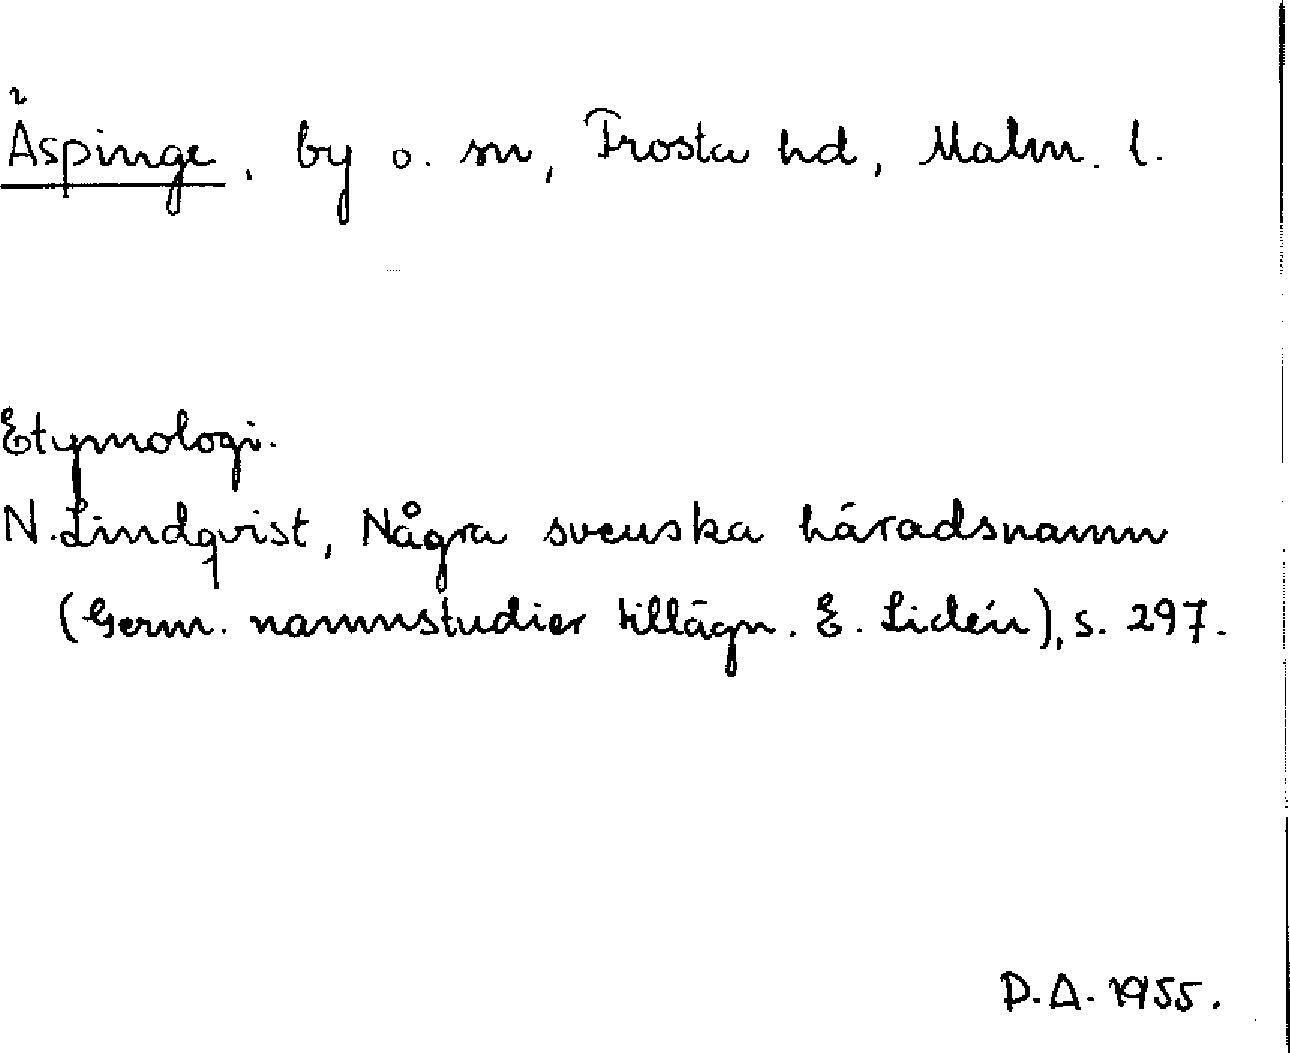 Äspinge, by o. sn, Frosta hd, Malm. l.
Etymologi.
N. Lindqvist, Några svenska häradsnamn
(Germ. namnstudier tillägn. E. Lidén), s. 297.
D.A. 1955.